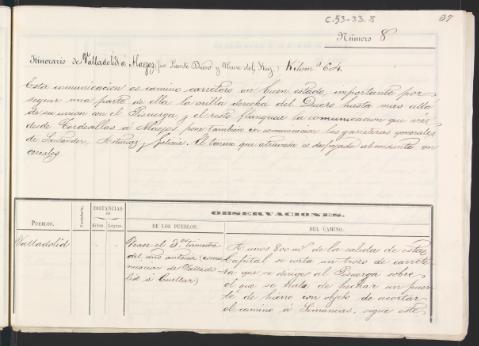 C-53-33-8
37
Número 8
Itinerario de Valladolid á Mayorga por Puente Duero y Nava del Rey. Kilom.s 64.
Esta comunicacion es camino carretero en buen estado, importante por
seguir una parte de ella la orilla derecha del Duero hasta mas allá
de su union con el Pisuerga y el resto flanquea la comunicacion que vá
desde Tordesillas á pone tambien en comunicacion las carreteras generales
de Santander, Asturias y Galicia. El terreno que atraviesa es despejado abundante en
cereales.
PUEBLOS.
DISTANCIAS
OBSERVACIONES.
DE LOS PUEBLOS.
DEL CAMINO.
Valladolid
Vean el 3.er
del año anterior (comu-
nicacion de Vallado-
lid á Cuellar)
A unos 800 m.s de la salida de esta
Capital se corta un trozo de carrete-
ra que se dirige al Pisuerga sobre
el que se trata de echar un puen-
te de hierro con objeto de acortar
el camino á Simancas, sigue este